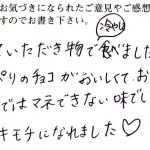 お気づきになられたご意見やご感想
すのでお書き下さい。
冷やし
ていただき物で食べました
パリのチョコがおいしくて、お
ではマネできない味でし
キモチになれました♡